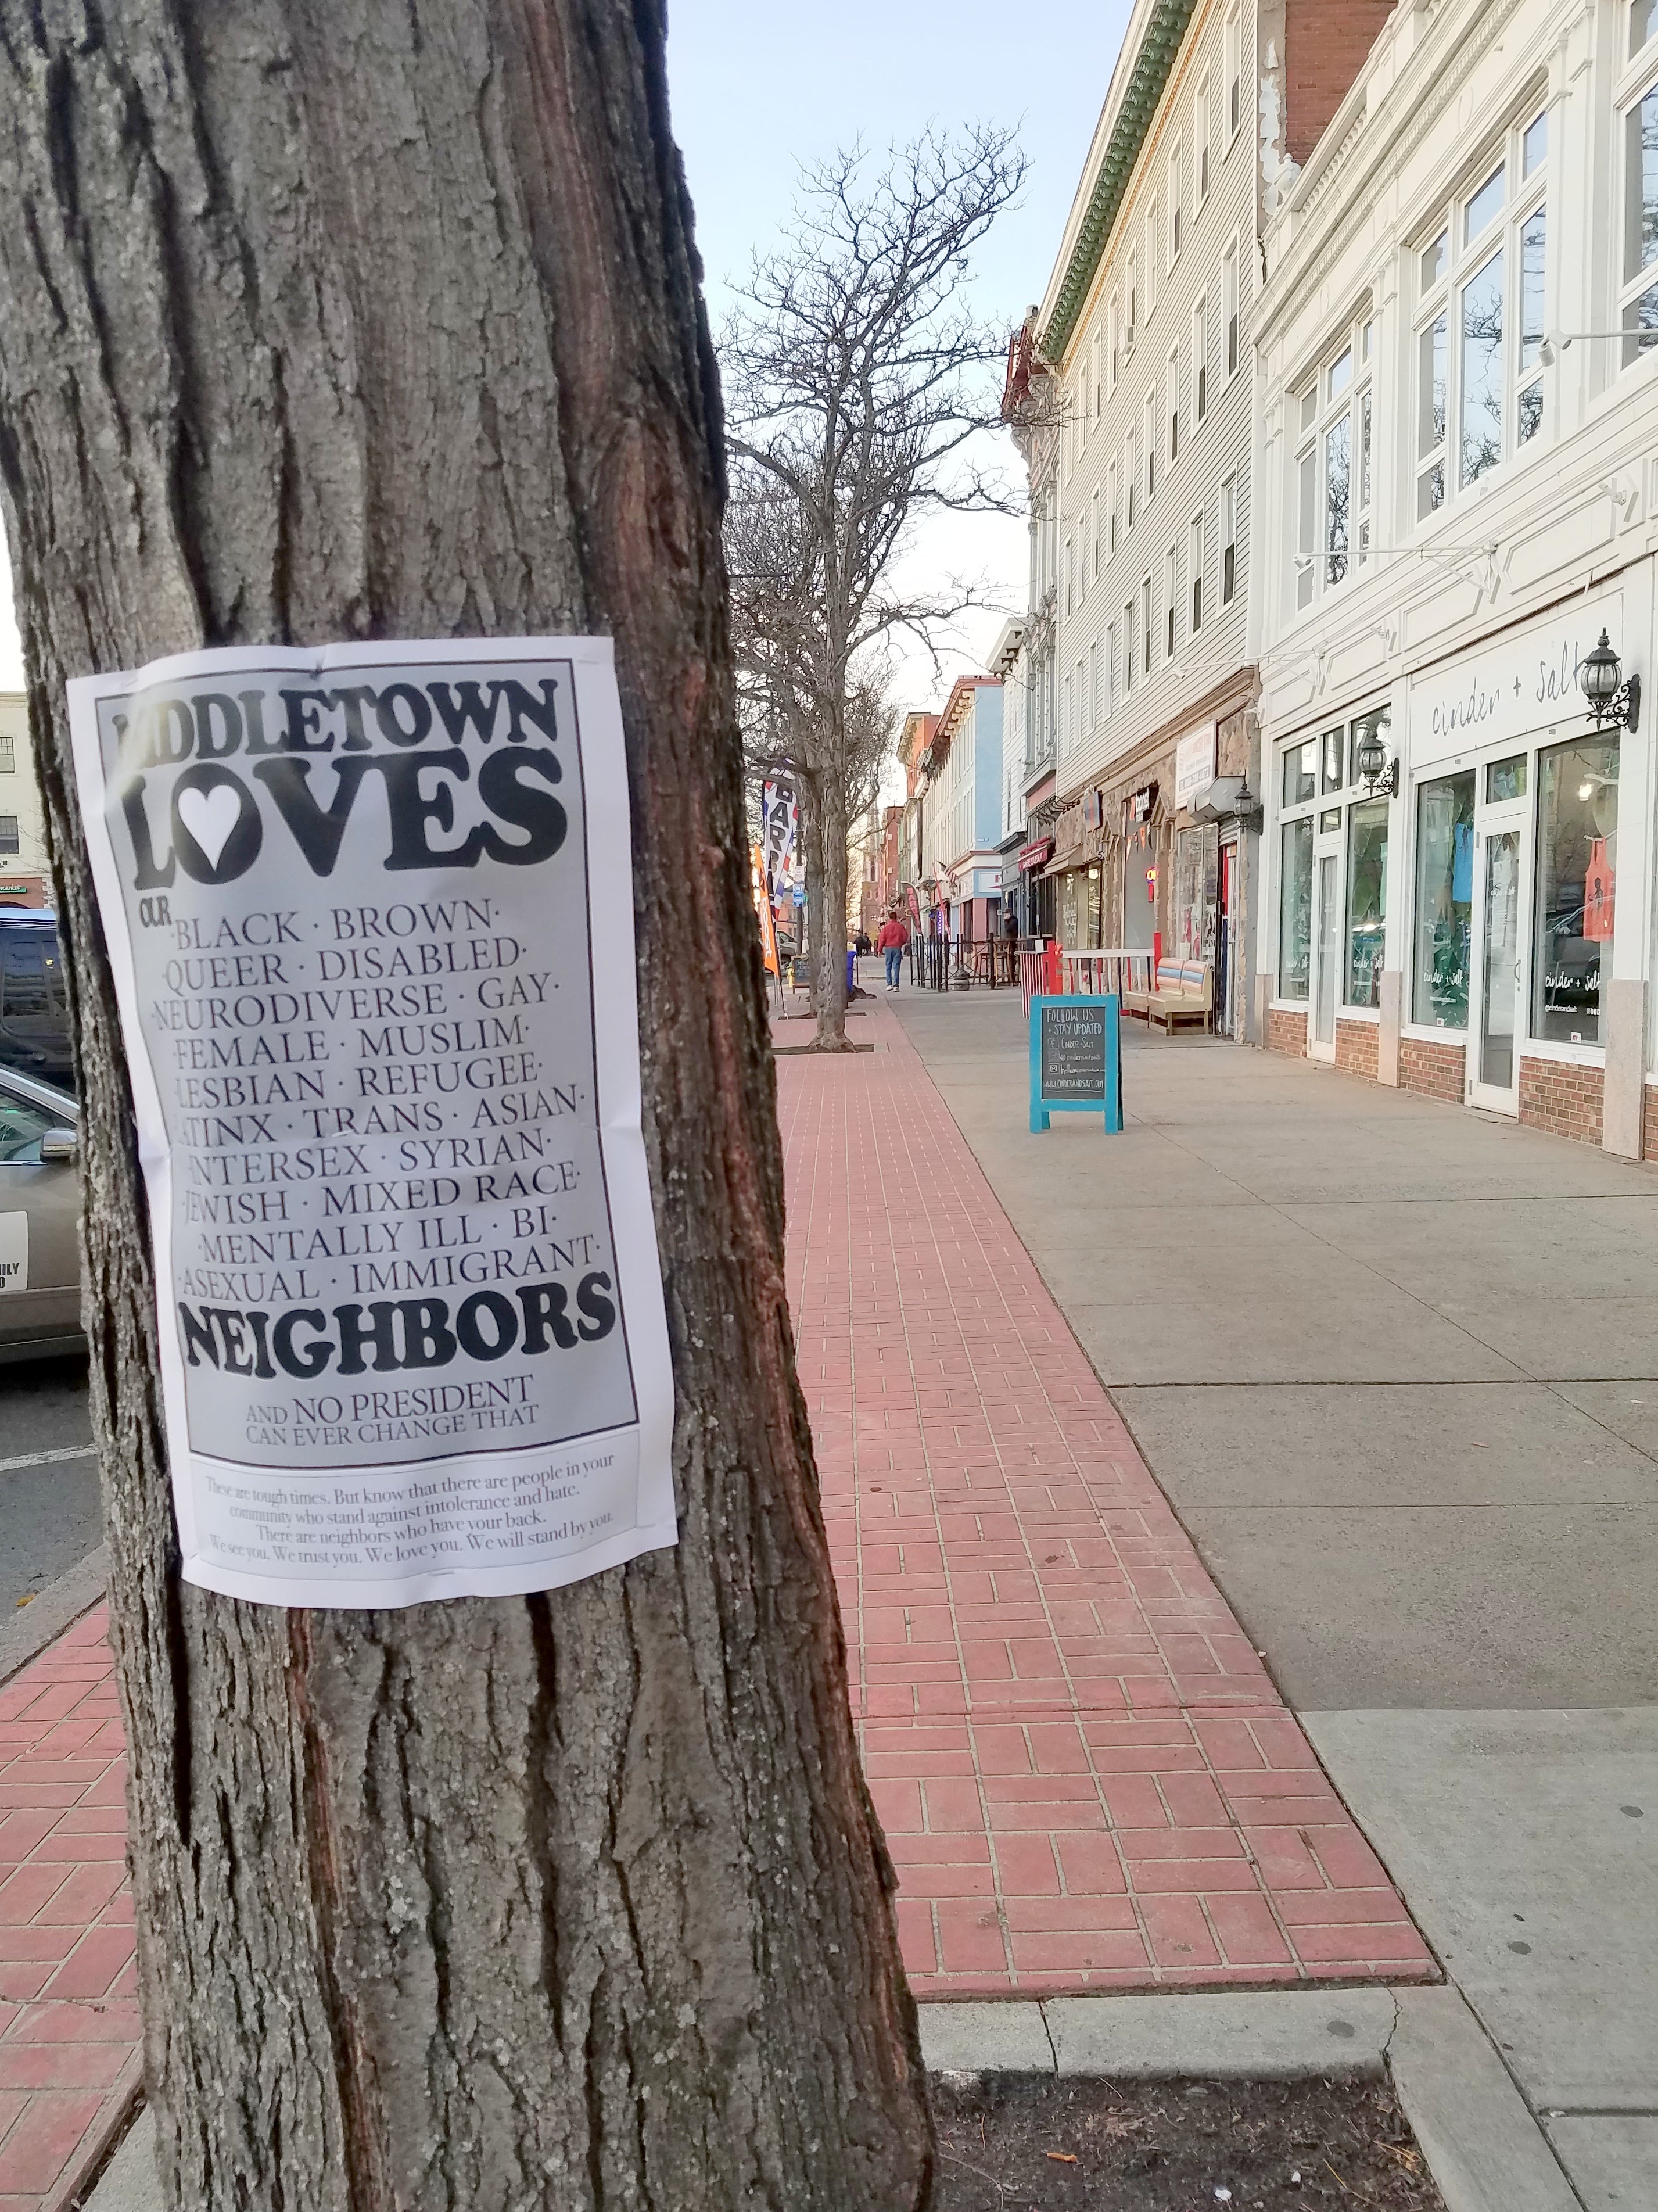 MIDDLETOWN
LOVES
OUR
BLACK · BROWN·
·QUEER · DISABLED·
·NEURODIVERSE · GAY·
·FEMALE · MUSLIM·
LESBIAN · REFUGEE·
LATINX · TRANS · ASIAN·
INTERSEX · SYRIAN·
JEWISH · MIXED RACE·
·MENTALLY ILL · BI·
·ASEXUAL · IMMIGRANT·
NEIGHBORS
AND NO PRESIDENT
CAN EVER CHANGE THAT
These are tough times. But know that there are people in your
community who stand against intolerance and hate.
There are neighbors who have your back.
We see you. We trust you. We love you. We will stand by you.
cinder + salt
FOLLOW US
+ STAY UPDATED
CINDER+SALT
@cinderandsalt
WWW.CINDERANDSALT.COM
cinder + salt
cinder + salt
@cinderandsalt
BAR